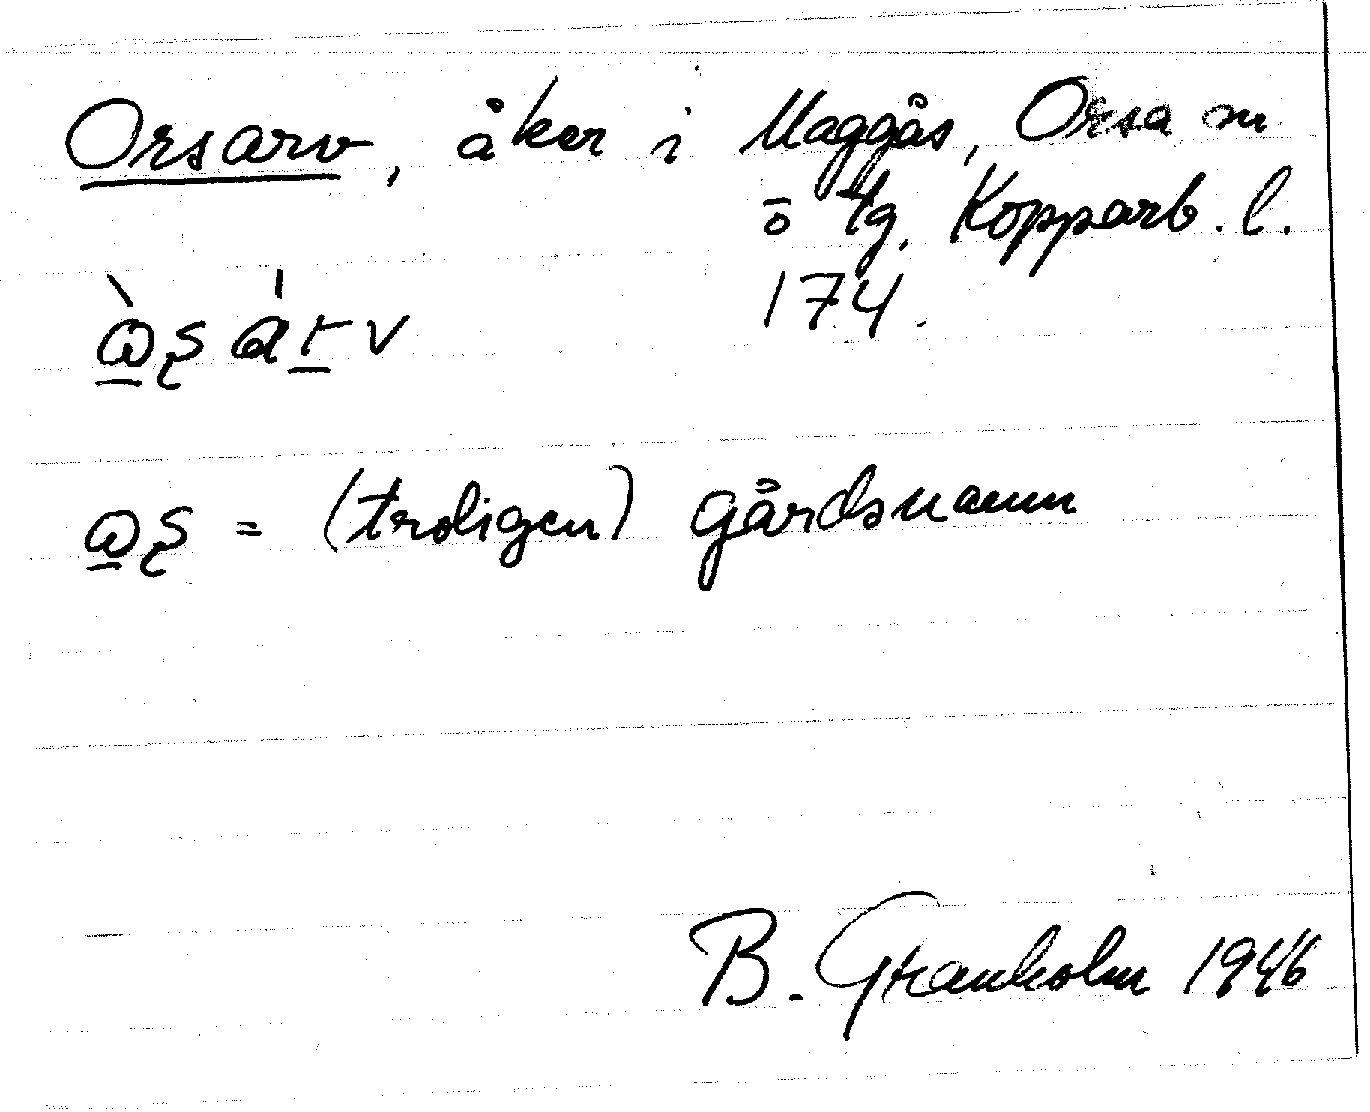 Orsarv, åker i Maggås, Orsa sn
ö tg. Kopparb. l.
174.
= (troligen) gårdsnamn
B. Granholm 1946